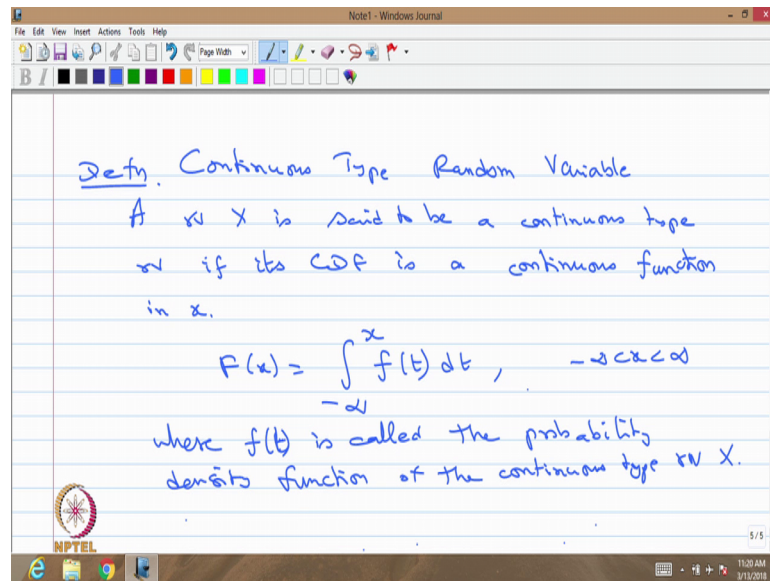 Note1 - Windows Journal
File Edit View Insert Actions Tools Help
Page Width
B I
Defn. Continuous Type Random Variable
A rv X is said to be a continuous type
rv if its CDF is a continuous function
in x.
F(x) = ∫_{-∞}^{x} f(t) dt, -∞<x<∞
where f(t) is called the probability
density function of the continuous type rv X.
5/5
NPTEL
11:20 AM
3/13/2018